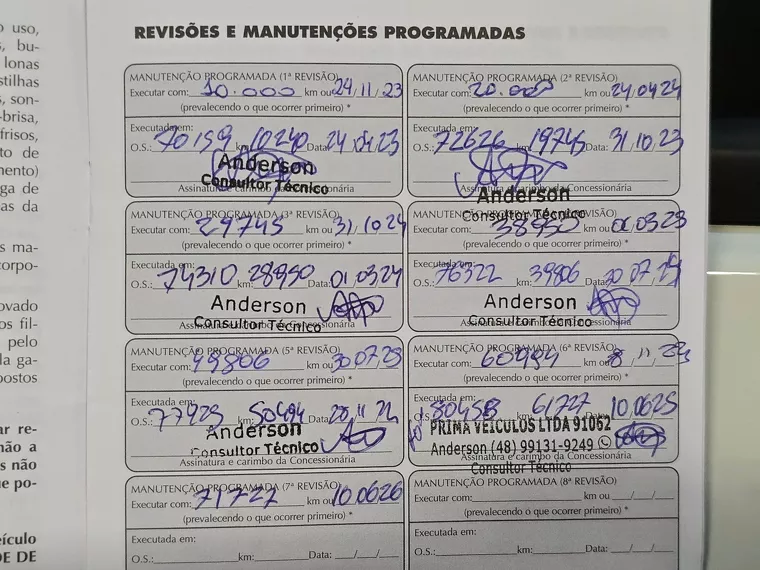 o uso,
s, bu-
lonas
stilhas
s, son-
-brisa,
frisos,
to de
mento)
ga de
as da
s ma-
corpo-
ovado
os fil-
pelo
la ga-
postos
ar re-
não a
s não
e po-
eículo
DE DE
REVISÕES E MANUTENÇÕES PROGRAMADAS
MANUTENÇÃO PROGRAMADA (1ª REVISÃO)
Executar com: 10.000 km ou 24/11/23
(prevalecendo o que ocorrer primeiro) *
Executada em:
O.S.: 70159 km: 10240 Data: 24/04/23
Anderson
Consultor Técnico
Assinatura e carimbo da Concessionária
MANUTENÇÃO PROGRAMADA (2ª REVISÃO)
Executar com: 20.000 km ou 24/04/24
(prevalecendo o que ocorrer primeiro) *
Executada em:
O.S.: 72626 km: 19745 Data: 31/10/23
Assinatura e carimbo da Concessionária
Anderson
Consultor Técnico
MANUTENÇÃO PROGRAMADA (3ª REVISÃO)
Executar com: 29745 km ou 31/10/24
(prevalecendo o que ocorrer primeiro) *
Executada em:
O.S.: 74310 km: 28950 Data: 01/03/24
Anderson
Consultor Técnico
Assinatura e carimbo da Concessionária
MANUTENÇÃO PROGRAMADA REVISÃO)
Executar com: 38950 km ou 03/25
(prevalecendo o que ocorrer primeiro) *
Executada em:
O.S.: 76322 km: 39806 Data: 30/07/24
Anderson
Consultor Técnico
Assinatura e carimbo da Concessionária
MANUTENÇÃO PROGRAMADA (5ª REVISÃO)
Executar com: 49806 km ou 30/07/25
(prevalecendo o que ocorrer primeiro) *
Executada em:
O.S.: km: 50494 Data: 28/11/24
Anderson
Consultor Técnico
Assinatura e carimbo da Concessionária
MANUTENÇÃO PROGRAMADA (6ª REVISÃO)
Executar com: km ou
(prevalecendo o que ocorrer primeiro) *
Executada em:
80458 61727 10/06/25
PRIMA VEICULOS LTDA 91062
Anderson (48) 99131-9249
Assinatura e carimbo da Concessionária
Consultor Técnico
MANUTENÇÃO PROGRAMADA (7ª REVISÃO)
Executar com: 71727 km ou 10/06/26
(prevalecendo o que ocorrer primeiro) *
Executada em:
O.S.: km: Data: / /
MANUTENÇÃO PROGRAMADA (8ª REVISÃO)
Executar com: km ou / /
(prevalecendo o que ocorrer primeiro) *
Executada em:
O.S.: km: Data: / /